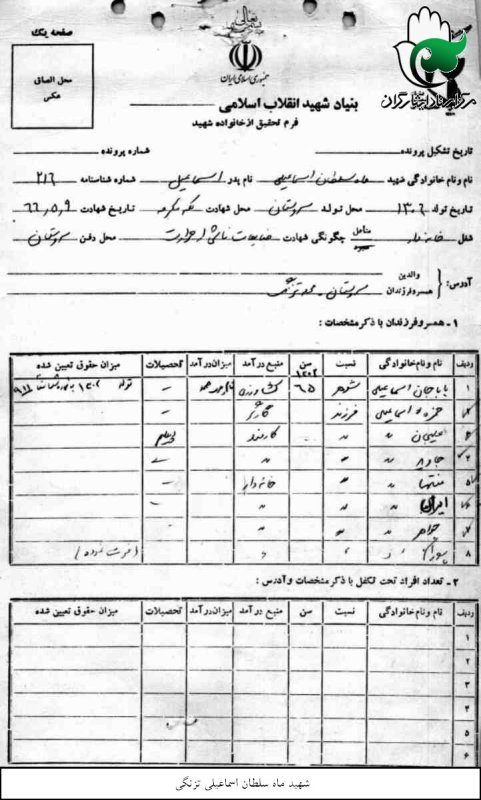 بسمه تعالی
صفحه یک
جمهوری اسلامی ایران
محل الصاق
عکس
بنیاد شهید انقلاب اسلامی
فرم تحقیق از خانواده شهید
تاریخ تشکیل پرونده
شماره پرونده
نام و نام خانوادگی شهید ماه سلطان اسماعیلی نام پدر اسماعیل شماره شناسنامه ۲۱۶
تاریخ تولد ۱۳۰۶ محل تولد سروستان محل شهادت مکه مکرمه تاریخ شهادت ۶۶٫۵٫۹
شغل خانه دار متاهل چگونگی شهادت ضایعات ناشی از محل دفن سروستان
آدرس: والدین
همسر و فرزندان سروستان - محله تزنگ
۱ - همسر و فرزندان با ذکر مشخصات :
ردیف نام و نام خانوادگی نسبت سن منبع درآمد میزان درآمد تحصیلات میزان حقوق تعیین شده
۱ باباجان اسماعیلی شوهر ۶۵ کشاورزی -
حمزه اسماعیلی فرزند کارگر -
۳ سلیمان " " کارمند دیپلم
" " "
منتها " " خانه دار -
ایران " " "
جواهر " " "
۸ پوران " " " (فوت نموده)
۲ - تعداد افراد تحت تکفل با ذکر مشخصات و آدرس :
ردیف نام و نام خانوادگی نسبت سن منبع درآمد میزان درآمد تحصیلات میزان حقوق تعیین شده
۱
۲
۳
۴
۵
۶
شهید ماه سلطان اسماعیلی تزنگی